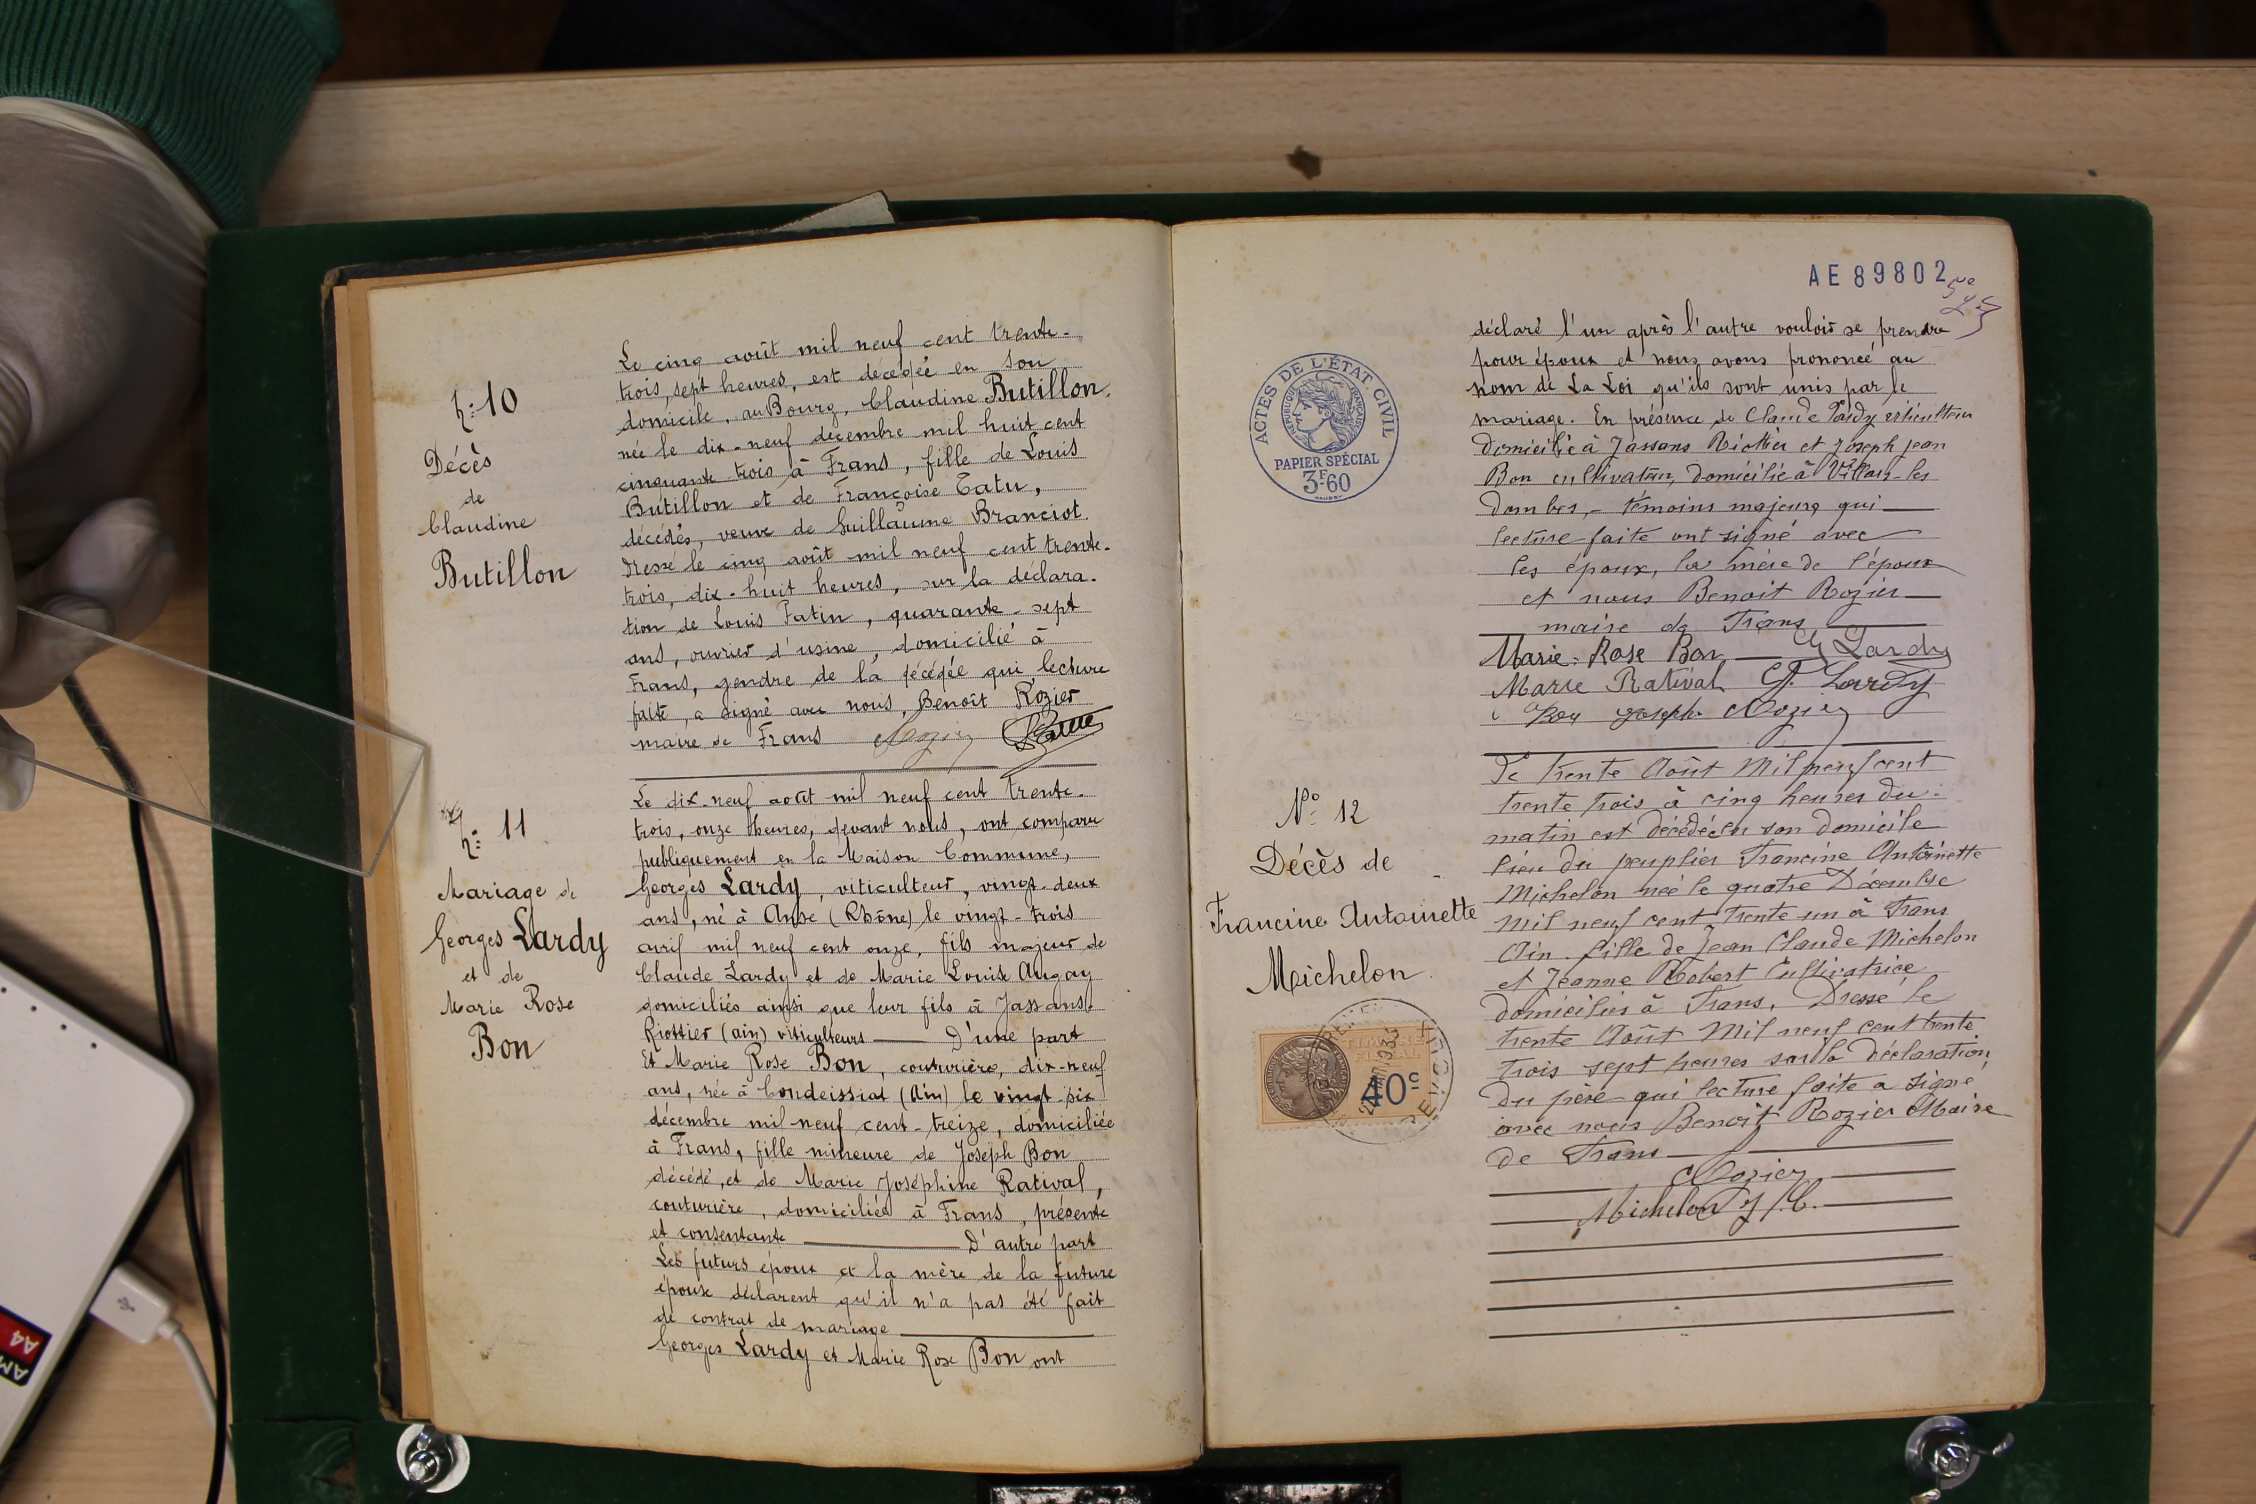 N° 10
Décès
de
Claudine
Butillon
Le cinq août mil neuf cent trente-
trois, sept heures, est décédée en son
domicile, au Bourg, Claudine Butillon,
née le dix-neuf décembre mil huit cent
cinquante trois à Frans, fille de Louis
Butillon et de Françoise Tatu,
décédés, veuve de Guillaume Branciot.
Dressé le cinq août mil neuf cent trente-
trois, dix-huit heures, sur la déclara-
tion de Louis Patin, quarante-sept
ans, ouvrier d'usine, domicilié à
Frans, gendre de la décédée qui, lecture
faite, a signé avec nous, Benoît Rozier
maire de Frans Rozier
N° 11
Mariage de
Georges Lardy
et de
Marie Rose
Bon
Le dix-neuf août mil neuf cent trente-
trois, onze heures, devant nous, ont comparu
publiquement en la Maison Commune,
Georges Lardy, viticulteur, vingt-deux
ans, né à Anse (Rhône) le vingt-trois
avril mil neuf cent onze, fils majeur de
Claude Lardy et de Marie Louise Augay
domiciliés ainsi que leur fils à Jassans-
Riottier (Ain) viticulteurs D'une part
Et Marie Rose Bon, couturière, dix-neuf
ans, née à Condeissiat (Ain) le vingt-six
décembre mil neuf cent-treize, domiciliée
à Frans, fille mineure de Joseph Bon
décédé, et de Marie Joséphine Ratival,
couturière, domiciliée à Frans, présente
et consentante D'autre part
Les futurs époux et la mère de la future
épouse déclarent qu'il n'a pas été fait
de contrat de mariage
Georges Lardy et Marie Rose Bon ont
AE 89802
ACTES DE L'ÉTAT CIVIL
RÉPUBLIQUE FRANÇAISE
PAPIER SPÉCIAL
3F.60
déclaré l'un après l'autre vouloir se prendre
pour époux et nous avons prononcé au
nom de La Loi qu'ils sont unis par le
mariage. En présence de Claude Lardy viticulteur
domicilié à Jassans Riottier et Joseph Jean
Bon cultivateur, domicilié à Villars-les
dombes, témoins majeurs qui
lecture faite ont signé avec
les époux, la mère de l'épouse
et nous Benoit Rozier
maire de Frans
Marie-Rose Bon G Lardy
Marie Ratival C. Lardy
Bon joseph Rozier
N° 12
Décès de
Francine Antoinette
Michelon
40c
Le trente Août Mil neuf cent
trente trois à cinq heures du
matin est décédée en son domicile
lieu du peuplier Francine Antoinette
Michelon née le quatre Décembre
mil neuf cent trente un à Frans
Ain. fille de Jean Claude Michelon
et Jeanne Robert Cultivatrice
domiciliés à Frans. Dressé le
trente Août Mil neuf cent trente
trois sept heures sur la déclaration
du père qui lecture faite a signé
avec nous Benoit Rozier Maire
de Frans
Rozier
Michelon J. C.